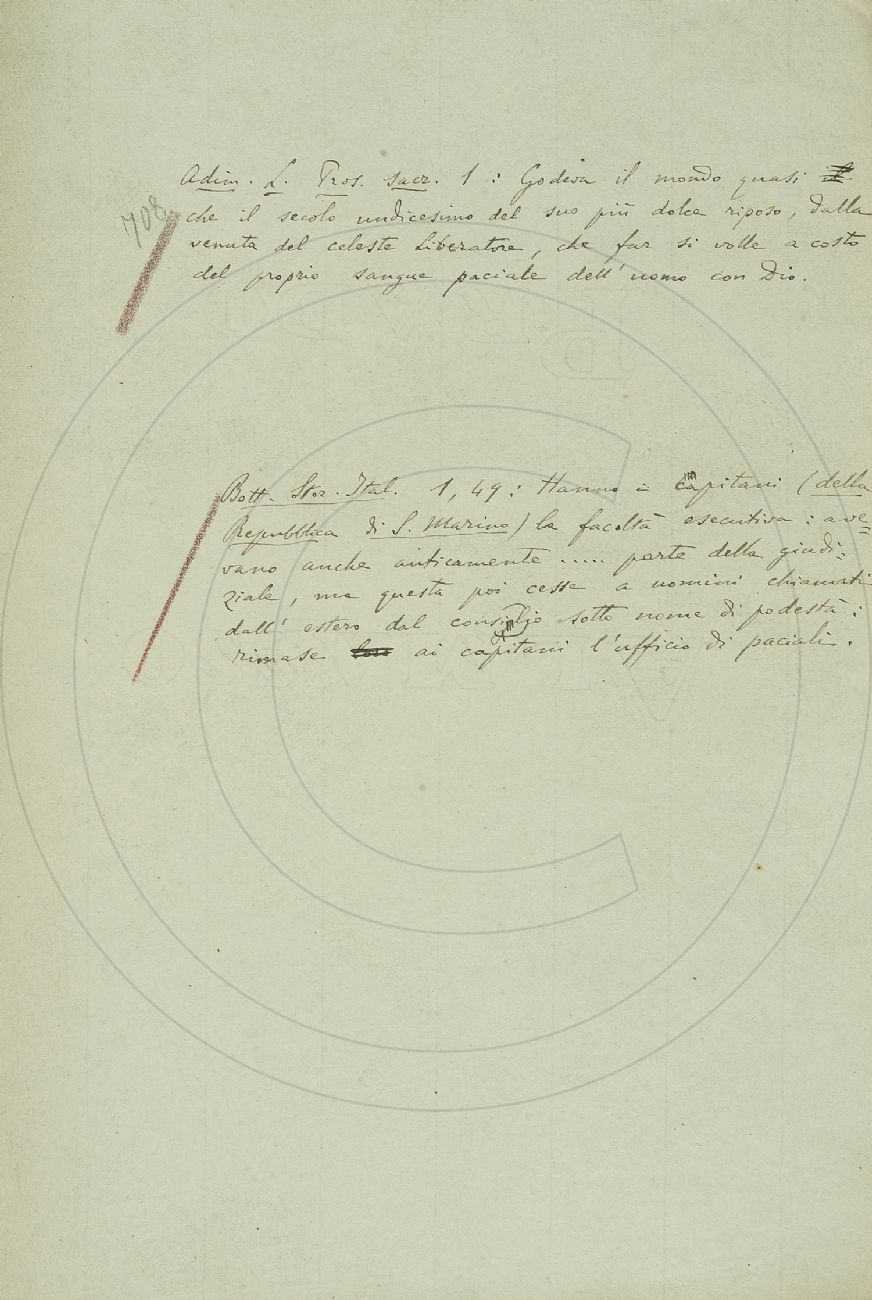 Adim. L. Pros. sacr. 1 : Godeva il mondo quasi il
708
che il secolo undicesimo del suo più dolce riposo, dalla
venuta del celeste Liberatore, che far si volle a costo
del proprio sangue paciale dell'uomo con Dio.
Bott. Stor. Ital. 1, 49 : Hanno i capitani (della
Repubblica di S. Marino) la facoltà esecutiva : ave=
vano anche anticamente ..... parte della giudi=
ziale, ma questa poi cesse a uomini chiamati
dall' estero dal consiglio sotto nome di podestà :
rimase loro ai capitani l'ufficio di paciali.